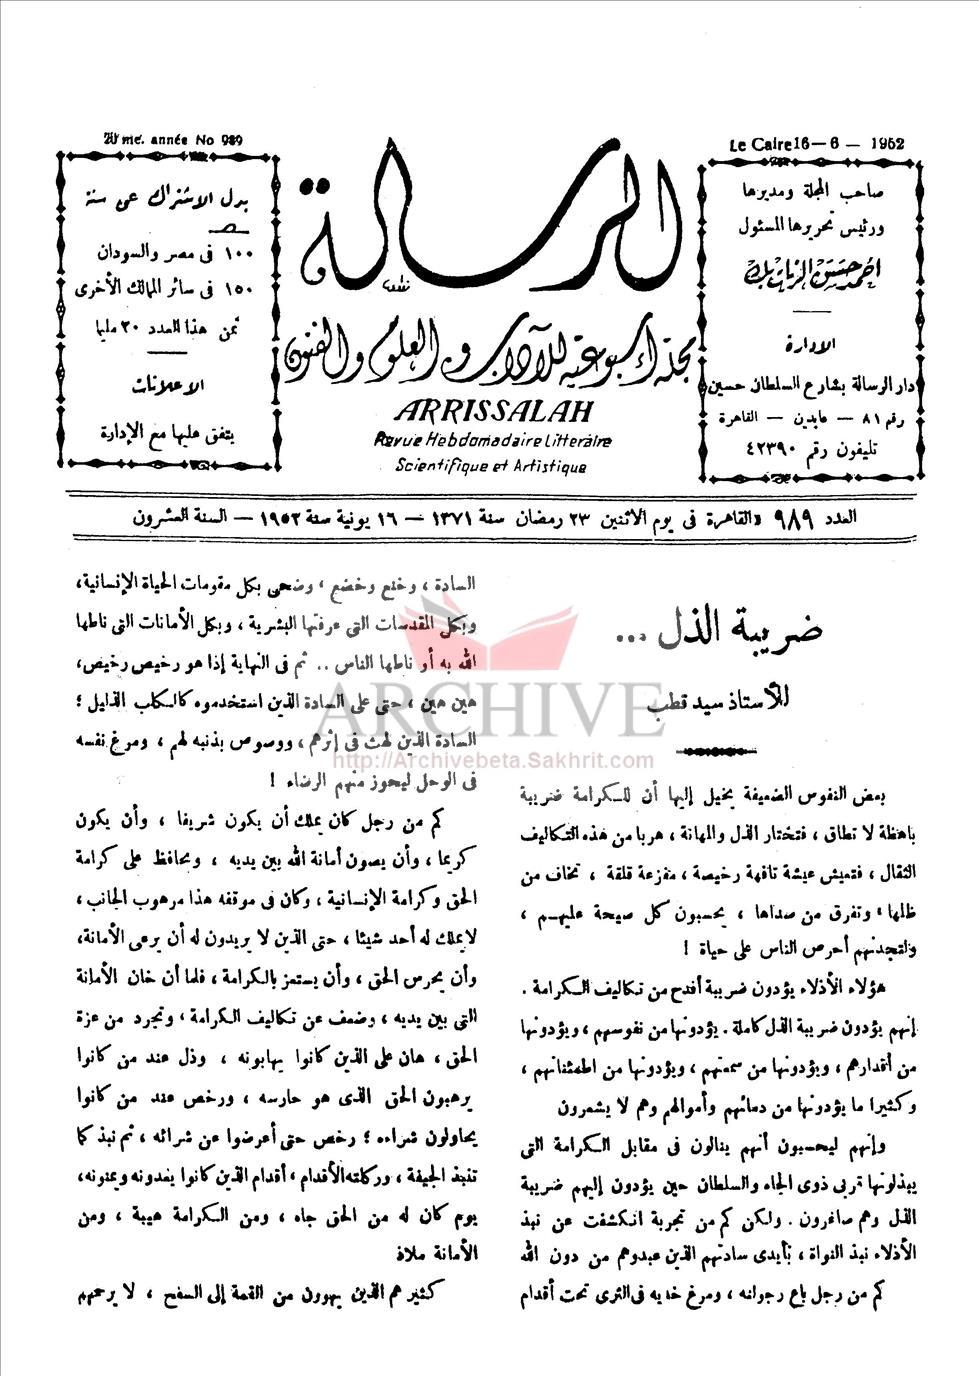 20me. année No 989
Le Caire 16 — 6 — 1952
صاحب المجلة ومديرها
ورئيس تحريرها المسئول
احمد حسن الزيات بك
الادارة
دار الرسالة بشارع السلطان حسين
رقم ٨١ — عابدين — القاهرة
تليفون رقم ٤٢٣٩٠
الرسالة
مجلة أسبوعية للآداب والعلوم والفنون
ARRISSALAH
Revue Hebdomadaire Littéraire
Scientifique et Artistique
بدل الاشتراك عن سنة
١٠٠ فى مصر والسودان
١٥٠ فى سائر الممالك الأخرى
ثمن هذا العدد ٢٠ مليما
الاعلانات
يتفق عليها مع الإدارة
العدد ٩٨٩ «القاهرة فى يوم الاثنين ٢٣ رمضان سنة ١٣٧١ — ١٦ يونية سنة ١٩٥٢ — السنة العشرون
ضريبة الذل ...
للأستاذ سيد قطب
بعض النفوس الضعيفة يخيل إليها أن للكرامة ضريبة
باهظة لا تطاق ، فتختار الذل والمهانة ، هربا من هذه التكاليف
الثقال ، فتعيش عيشة تافهة رخيصة ، مفزعة قلقة ، تخاف من
ظلها ، وتفرق من صداها ، يحسبون كل صيحة عليهم ،
ولتجدنهم أحرص الناس على حياة !
هؤلاء الأذلاء يؤدون ضريبة أفدح من تكاليف الكرامة .
إنهم يؤدون ضريبة الذل كاملة . يؤدونها من نفوسهم ، ويؤدونها
من أقدارهم ، ويؤدونها من سمعتهم ، ويؤدونها من اطمئنانهم ،
وكثيرا ما يؤدونها من دمائهم وأموالهم وهم لا يشعرون
وإنهم ليحسبون أنهم ينالون فى مقابل الكرامة التى
يبذلونها قربى ذوى الجاه والسلطان حين يؤدون إليهم ضريبة
الذل وهم صاغرون . ولكن كم من تجربة انكشفت عن نبذ
الأذلاء نبذ النواة ، بأيدى سادتهم الذين عبدوهم من دون الله
كم من رجل باع رجولته ، ومرغ خديه فى الثرى تحت أقدام
السادة ، وخنع وخضع ، وضحى بكل مقومات الحياة الإنسانية،
وبكل المقدسات التى عرفتها البشرية ، وبكل الأمانات التى ناطها
الله به أو ناطها الناس .. ثم فى النهاية إذا هو رخيص رخيص،
هين هين ، حتى على السادة الذين استخدموه كالكلب الذليل ؛
السادة الذين لهث فى إثرهم ، ووصوص بذنبه لهم ، ومرغ نفسه
فى الوحل ليحوز منهم الرضاء !
كم من رجل كان يملك أن يكون شريفا ، وأن يكون
كريما ، وأن يصون أمانة الله بين يديه ، ويحافظ على كرامة
الحق وكرامة الإنسانية ، وكان فى موقفه هذا مرهوب الجانب ،
لا يملك له أحد شيئا ، حتى الذين لا يريدون له أن يرعى الأمانة،
وأن يحرس الحق ، وأن يستعز بالكرامة ، فلما أن خان الأمانة
التى بين يديه ، وضعف عن تكاليف الكرامة ، وتجرد من عزة
الحق ، هان على الذين كانوا يهابونه ، وذل عند من كانوا
يرهبون الحق الذى هو حارسه ، ورخص عند من كانوا
يحاولون شراءه ؛ رخص حتى أعرضوا عن شرائه ، ثم نبذ كما
تنبذ الجيفة ، وركلته الأقدام ، أقدام الذين كانوا يعدونه ويمنونه،
يوم كان له من الحق جاه ، ومن الكرامة هيبة ، ومن
الأمانة ملاذ
كثير هم الذين يهوون من القمة إلى السفح ، لا يرحمهم
ARCHIVE
http://Archivebeta.Sakhrit.com